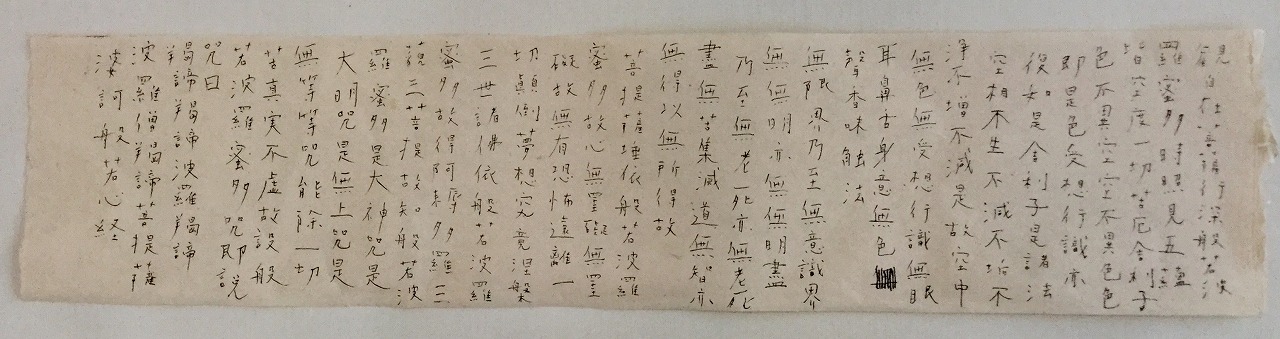 観自在菩薩行深般若波
羅蜜多時照見五蘊
皆空度一切苦厄舎利子
色不異空空不異色色
即是色受想行識亦
復如是舎利子是諸法
空相不生不滅不垢不
浄不増不減是故空中
無色無受想行識無眼
耳鼻舌身意無色
声香味触法
無限界乃至無意識界
無無明亦無無明盡
乃至無老死亦無老死
盡無苦集滅道無智亦
無得以無所得故
菩提薩埵依般若波羅
蜜多故心無罣礙無罣
礙故無有恐怖遠離一
切顛倒夢想究竟涅槃
三世諸佛依般若波羅
蜜多故得阿耨多羅三
藐三菩提故知般若波
羅蜜多是大神咒是
大明咒是無上咒是
無等等咒能除一切
苦真実不虚故設般
若波羅蜜多咒即説
咒曰
羯諦羯諦波羅羯諦
波羅僧羯諦菩提薩
婆訶般若心経